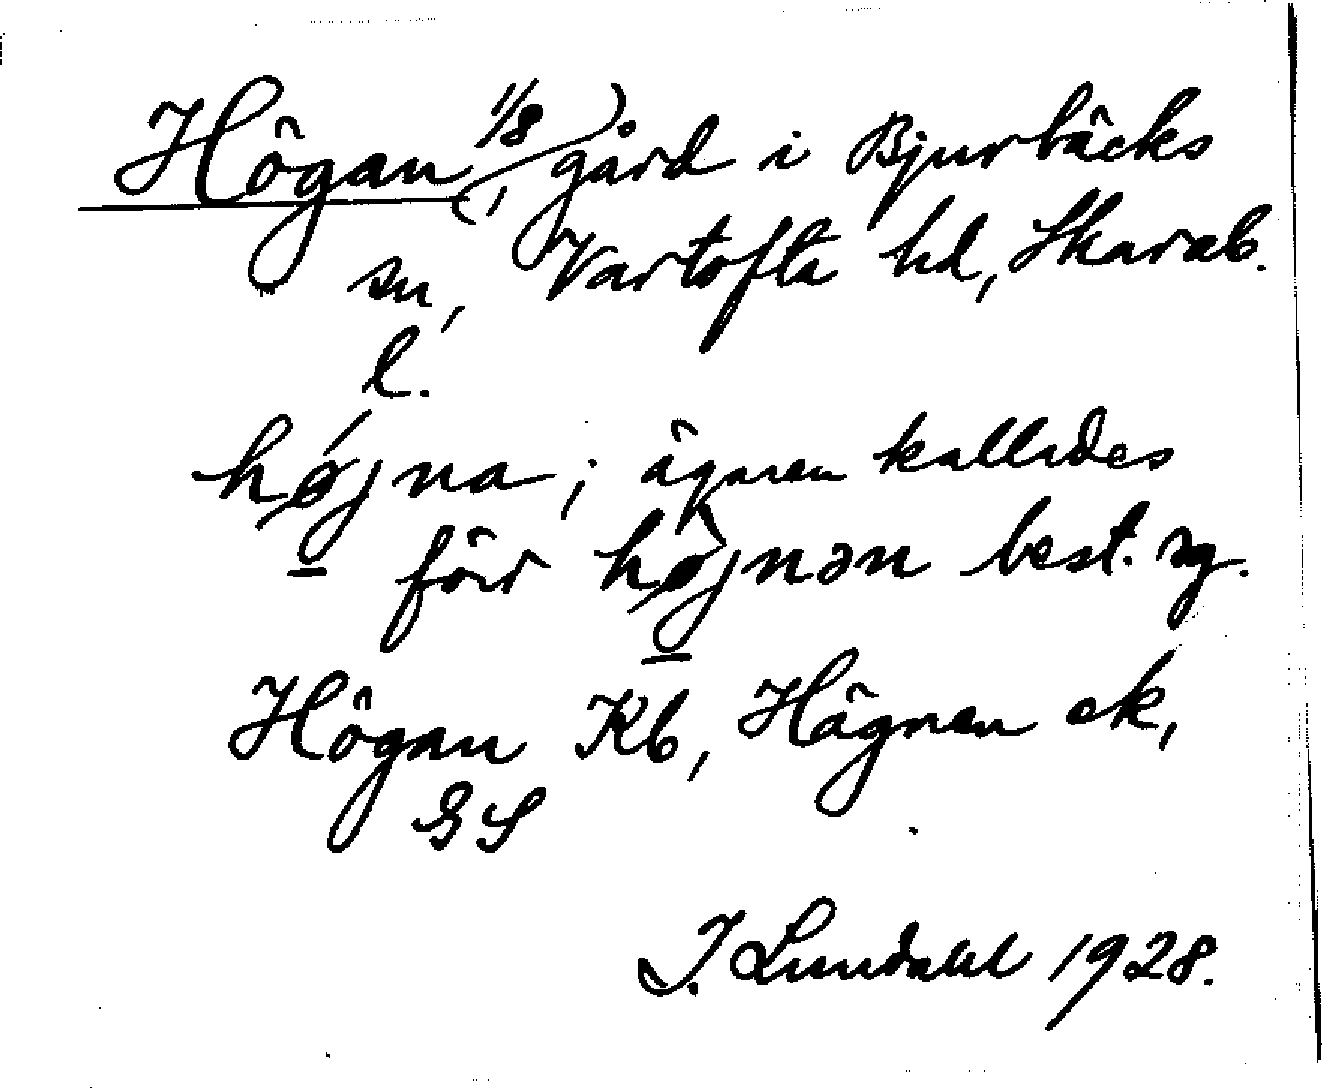 Högan (1/8), gård i Bjurbäcks
sn, Vartofta hd, Skarab.
l.
højna; ägaren kallades
förr højnən best. sg.
Högan Kb, Högnen ek,
GS
I. Lundahl 1928.